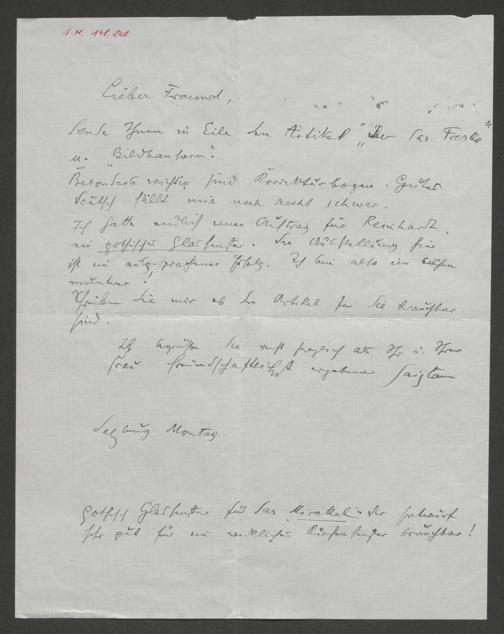 I.N. 148.240
Lieber Freund,
Sende Ihnen in Eile den Artikel "über das Fresko"
u. "Bildhauern".
Besonders wichtig sind Korrekturbogen. Gutes
deutsch fällt mir noch recht schwer.
Ich hatte endlich einen Auftrag für Reinhardt.
ein gothisches Glasfenster. Die Ausstellung hier
ist ein ausgesprochener Erfolg. Ich bin also ein
munter.
Schreiben Sie mir ob die Artikel für Sie brauchbar
sind.
Ich begrüße Sie recht herzlich als Ihr u. Ihrer
Frau freundschaftlichst ergebener
Salzburg Montag
gothisch Glasfenster für das Mirakel - der Entwurf
sehr gut für ein wirkliches Kirchenfenster brauchbar!